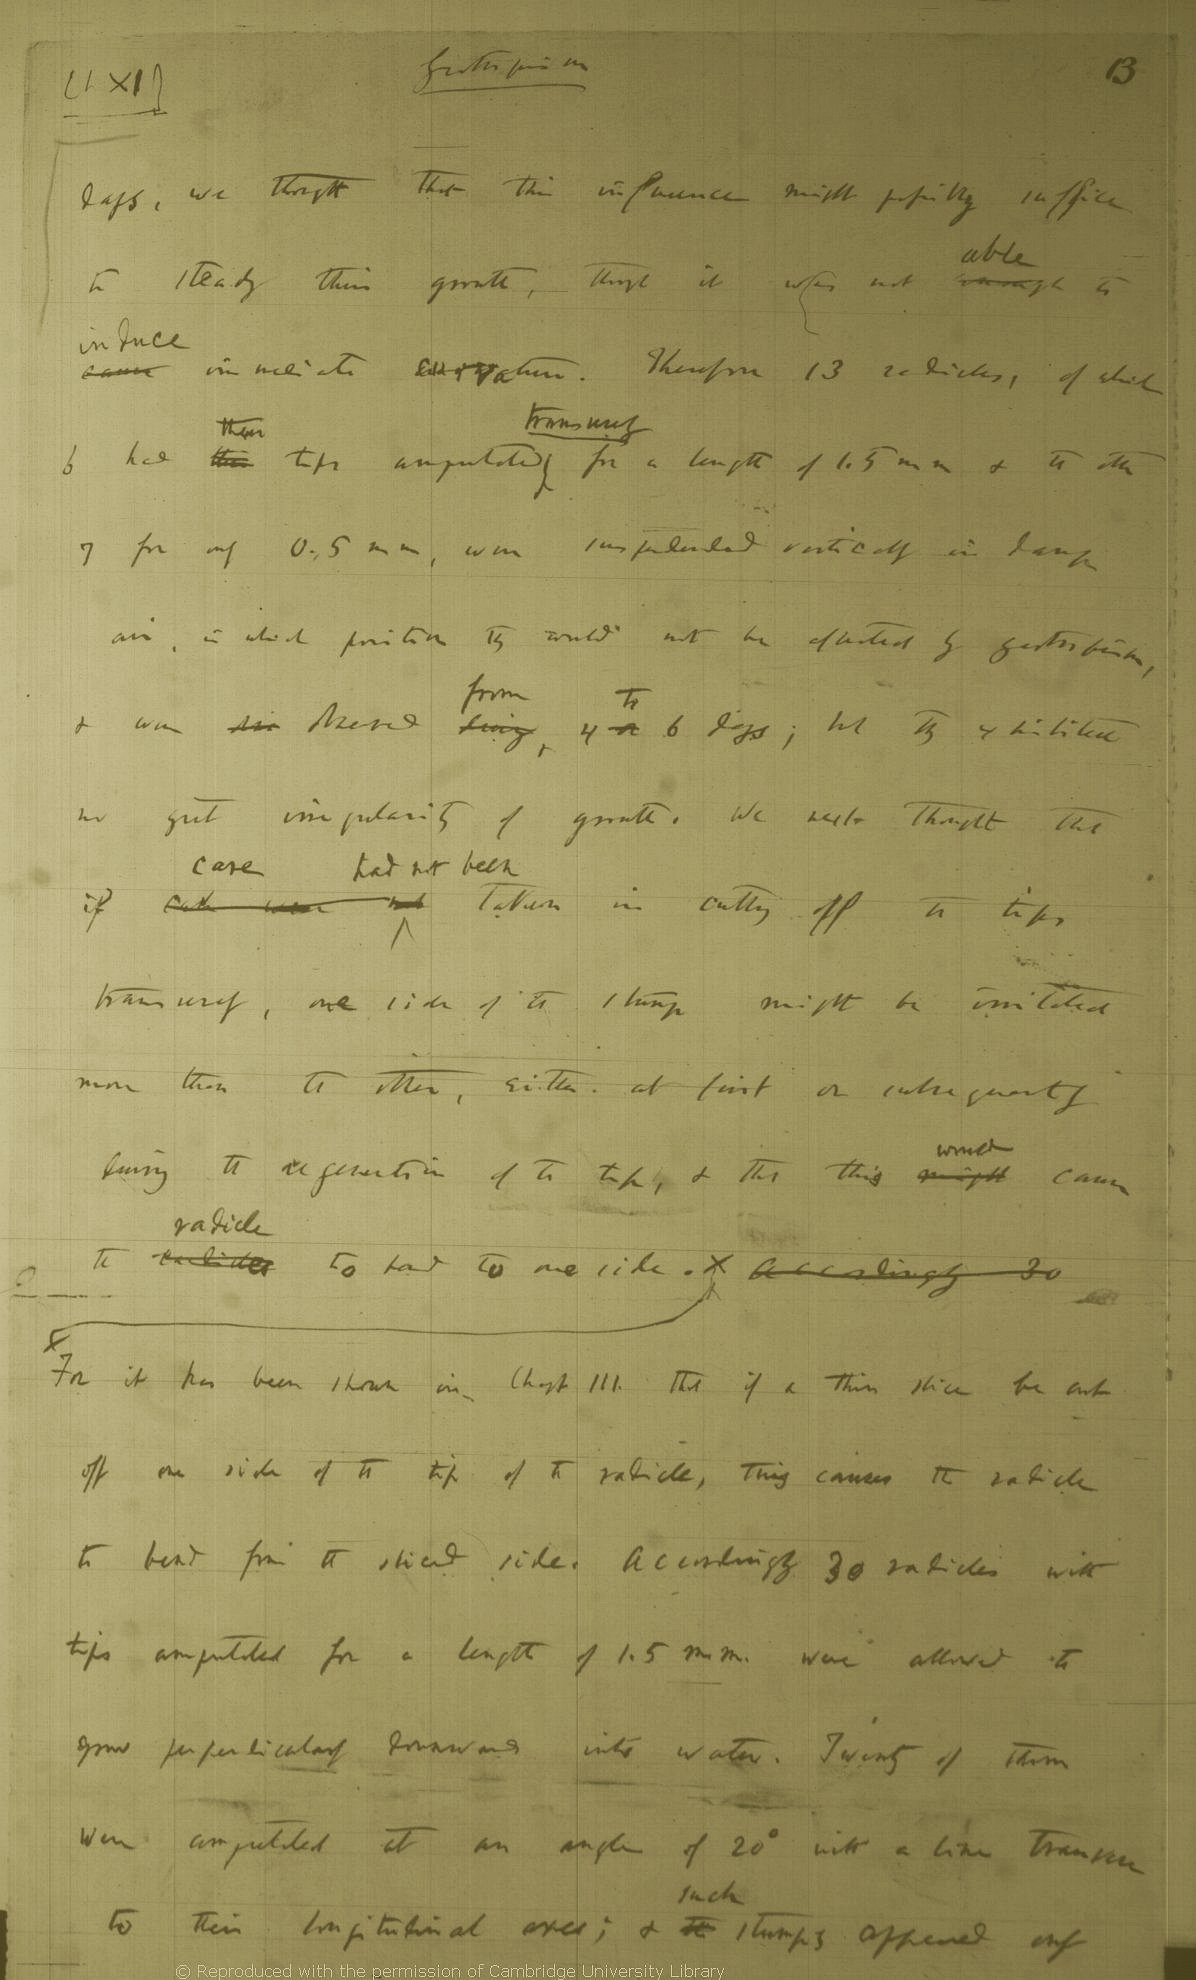 (1 XI)
Geotropism
13
days, we thought that this influence might possibly suffice
able
to steady their growth, though it was not enough to
induce
cause immediate curvature. Therefore 13 radicles, of which
their transversely
6 had their tips amputated for a length of 1.5 mm & the other
7 for only 0.5 mm, were suspended vertically in damp
air, in which position they would not be affected by geotropism,
from to
& were observed during 4 or 6 days; but they exhibited
no great irregularity of growth. We next thought that
care had not been
if care were not taken in cutting off the tips
transversely, one side of the stump might be irritated
more than the other, either at first or subsequently
during the regeneration of the tip, & that this
would
might cause
radicle
the radicles to bend to one side. X Accordingly 30
X For it has been shown in Chapt III. that if a thin slice be cut
off one side of the tip of the radicle, this causes the radicle
to bend from the sliced side. Accordingly 30 radicles with
tips amputated for a length of 1.5 m.m. were allowed to
grow perpendicularly downwards into water. Twenty of them
were amputated at an angle of 20° with a line transverse
such
to their longitudinal axes; & the stumps appeared only
© Reproduced with the permission of Cambridge University Library